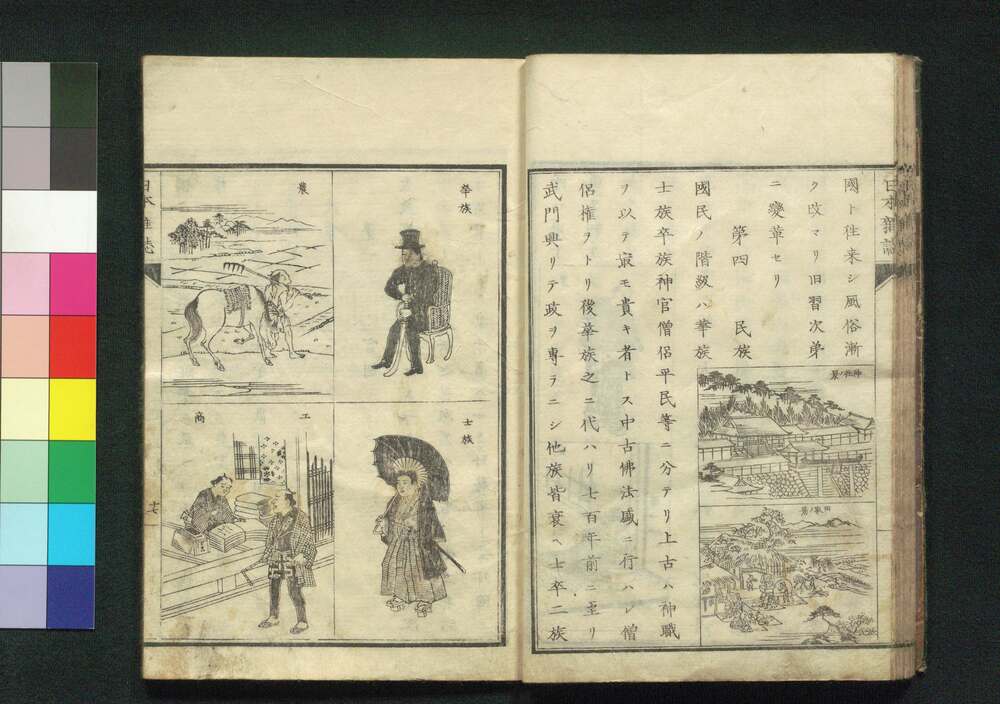 國ト往来シ風俗漸
ク改マリ旧習次弟
ニ變革セリ
第四 民族
國民ノ階級ハ華族
士族卒族神官僧侶平民等ニ分テリ上古ハ神職
ヲ以テ最モ貴キ者トス中古佛法盛ニ行ハレ僧
侶権ヲトリ後華族之ニ代ハリ七百年前ニ至リ
武門興リテ政ヲ専ラニシ他族皆衰ヘ士卒二族
華族
士族
農
工
商